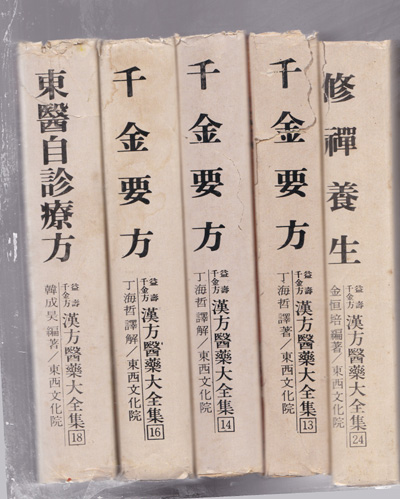 東醫自診療方
益壽千金方
漢方醫藥大全集 18
韓成昊編著/東西文化院
千金要方
益壽千金方
漢方醫藥大全集 16
丁海哲譯解/東西文化院
千金要方
益壽千金方
漢方醫藥大全集 14
丁海哲譯解/東西文化院
千金要方
益壽千金方
漢方醫藥大全集 13
丁海哲譯著/東西文化院
修禪養生
益壽千金方
漢方醫藥大全集 24
金恒培編著/東西文化院